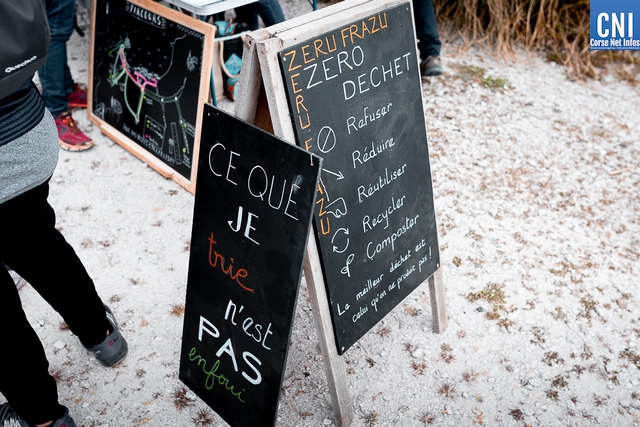 CNI
Corse Net Infos
PARCOURS
ZERU FRAZU
ZERU FRAZU
ZERO
DECHET
Refuser
Réduire
Réutiliser
Recycler
Composter
La meilleur déchet est
celui qu'on ne produit pas !
CE QUE
JE
trie
n'est
PAS
enfoui
Quechua